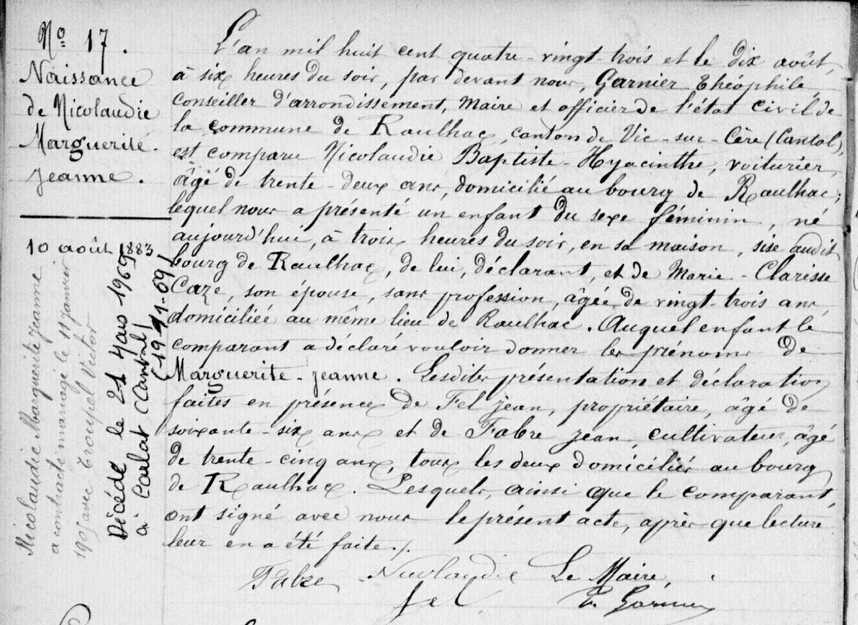 N° 17.
Naissance
de Nicolaudie
Marguerite-
Jeanne.
10 août 1883
Nicolaudie Marguerite Jeanne
a contracté mariage le 11 janvier
1905 avec Troupel Victor
Décédé le 21 Mars 1969
à Carlat (Cantal)
L'an mil huit cent quatre-vingt-trois et le dix août,
à six heures du soir, par devant nous, Garnier Théophile,
conseiller d'arrondissement, Maire et officier de l'état civil de
la commune de Raulhac, canton de Vic-sur-Cère (Cantal),
est comparu Nicolaudie Baptiste-Hyacinthe, voiturier,
âgé de trente-deux ans, domicilié au bourg de Raulhac;
lequel nous a présenté un enfant du sexe féminin, né
aujourd'hui, à trois heures du soir, en sa maison, sise audit
bourg de Raulhac, de lui, déclarant, et de Marie-Claresse
Caze, son épouse, sans profession, âgée de vingt-trois ans,
domiciliée au même lieu de Raulhac. Auquel enfant le
comparant a déclaré vouloir donner les prénoms de
Marguerite-Jeanne. Lesdites présentation et déclaration
faites en présence de Fel Jean, propriétaire, âgé de
soixante-six ans et de Fabre Jean, cultivateur, âgé
de trente-cinq ans, tous les deux domiciliés au bourg
de Raulhac. Lesquels, ainsi que le comparant,
ont signé avec nous le présent acte, après que lecture
leur en a été faite./.
Fabre Nicolaudie Le Maire,
fel T. Garnier